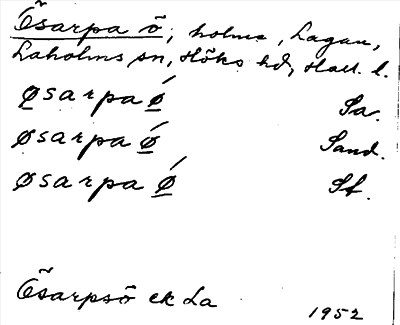 Ösarpa ö, holme, Lagan,
Laholms sn, Höks hd, Hall. l.
øsarpa ǿ Sa.
øsarpa ǿ Sand.
øsarpa ǿ St.
Ösarpsö ek La
1952